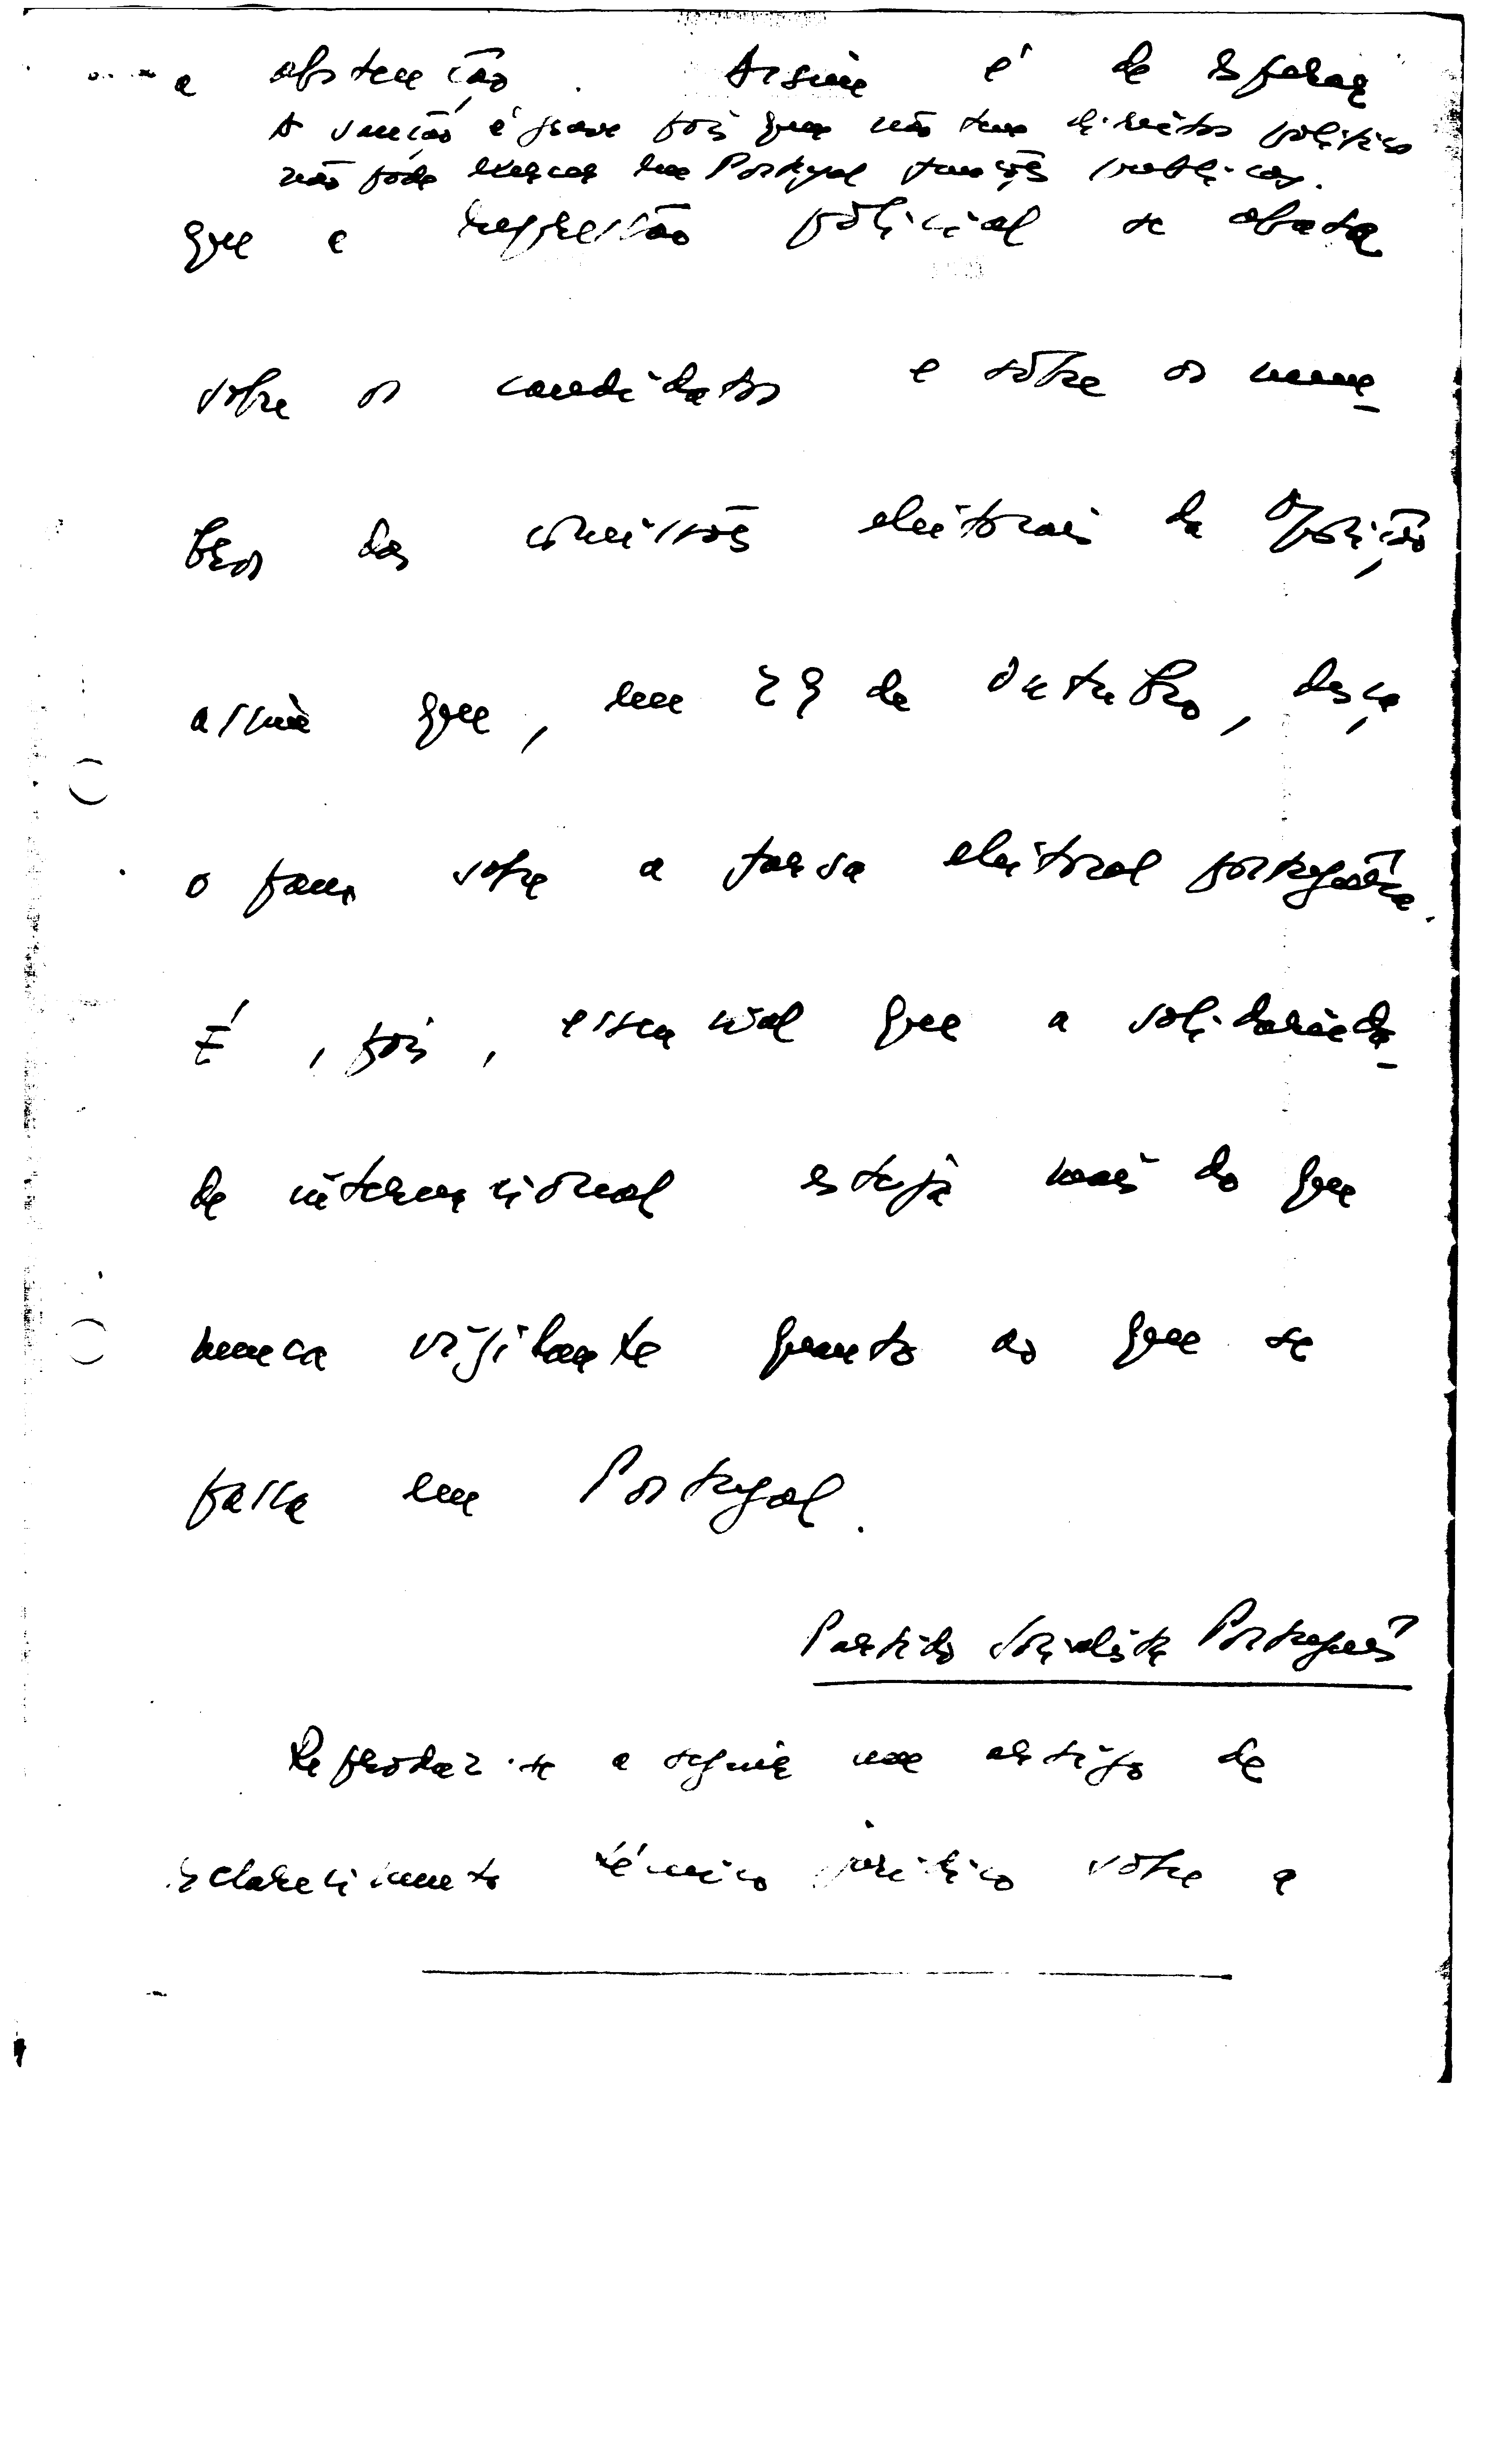 a abstenção. Assim é de esperar
A sanção é grave pois quem não tem direitos políticos
não pode exercer em Portugal funções publicas.
que a repressão policial se abata
sobre os candidatos e sôbre os mem-
bros das comissões eleitorais da Oposição
assim que, em 29 de Outubro, desça
o pano sobre a farsa eleitoral portuguêsa.
É, pois, essencial que a solidarieda-
de internacional esteja mais do que
nunca vigilante quanto ao que se
passa em Portugal.
Partido Socialista Português
Reproduz-se a seguir um artigo de
esclarecimento técnico jurídico sobre a